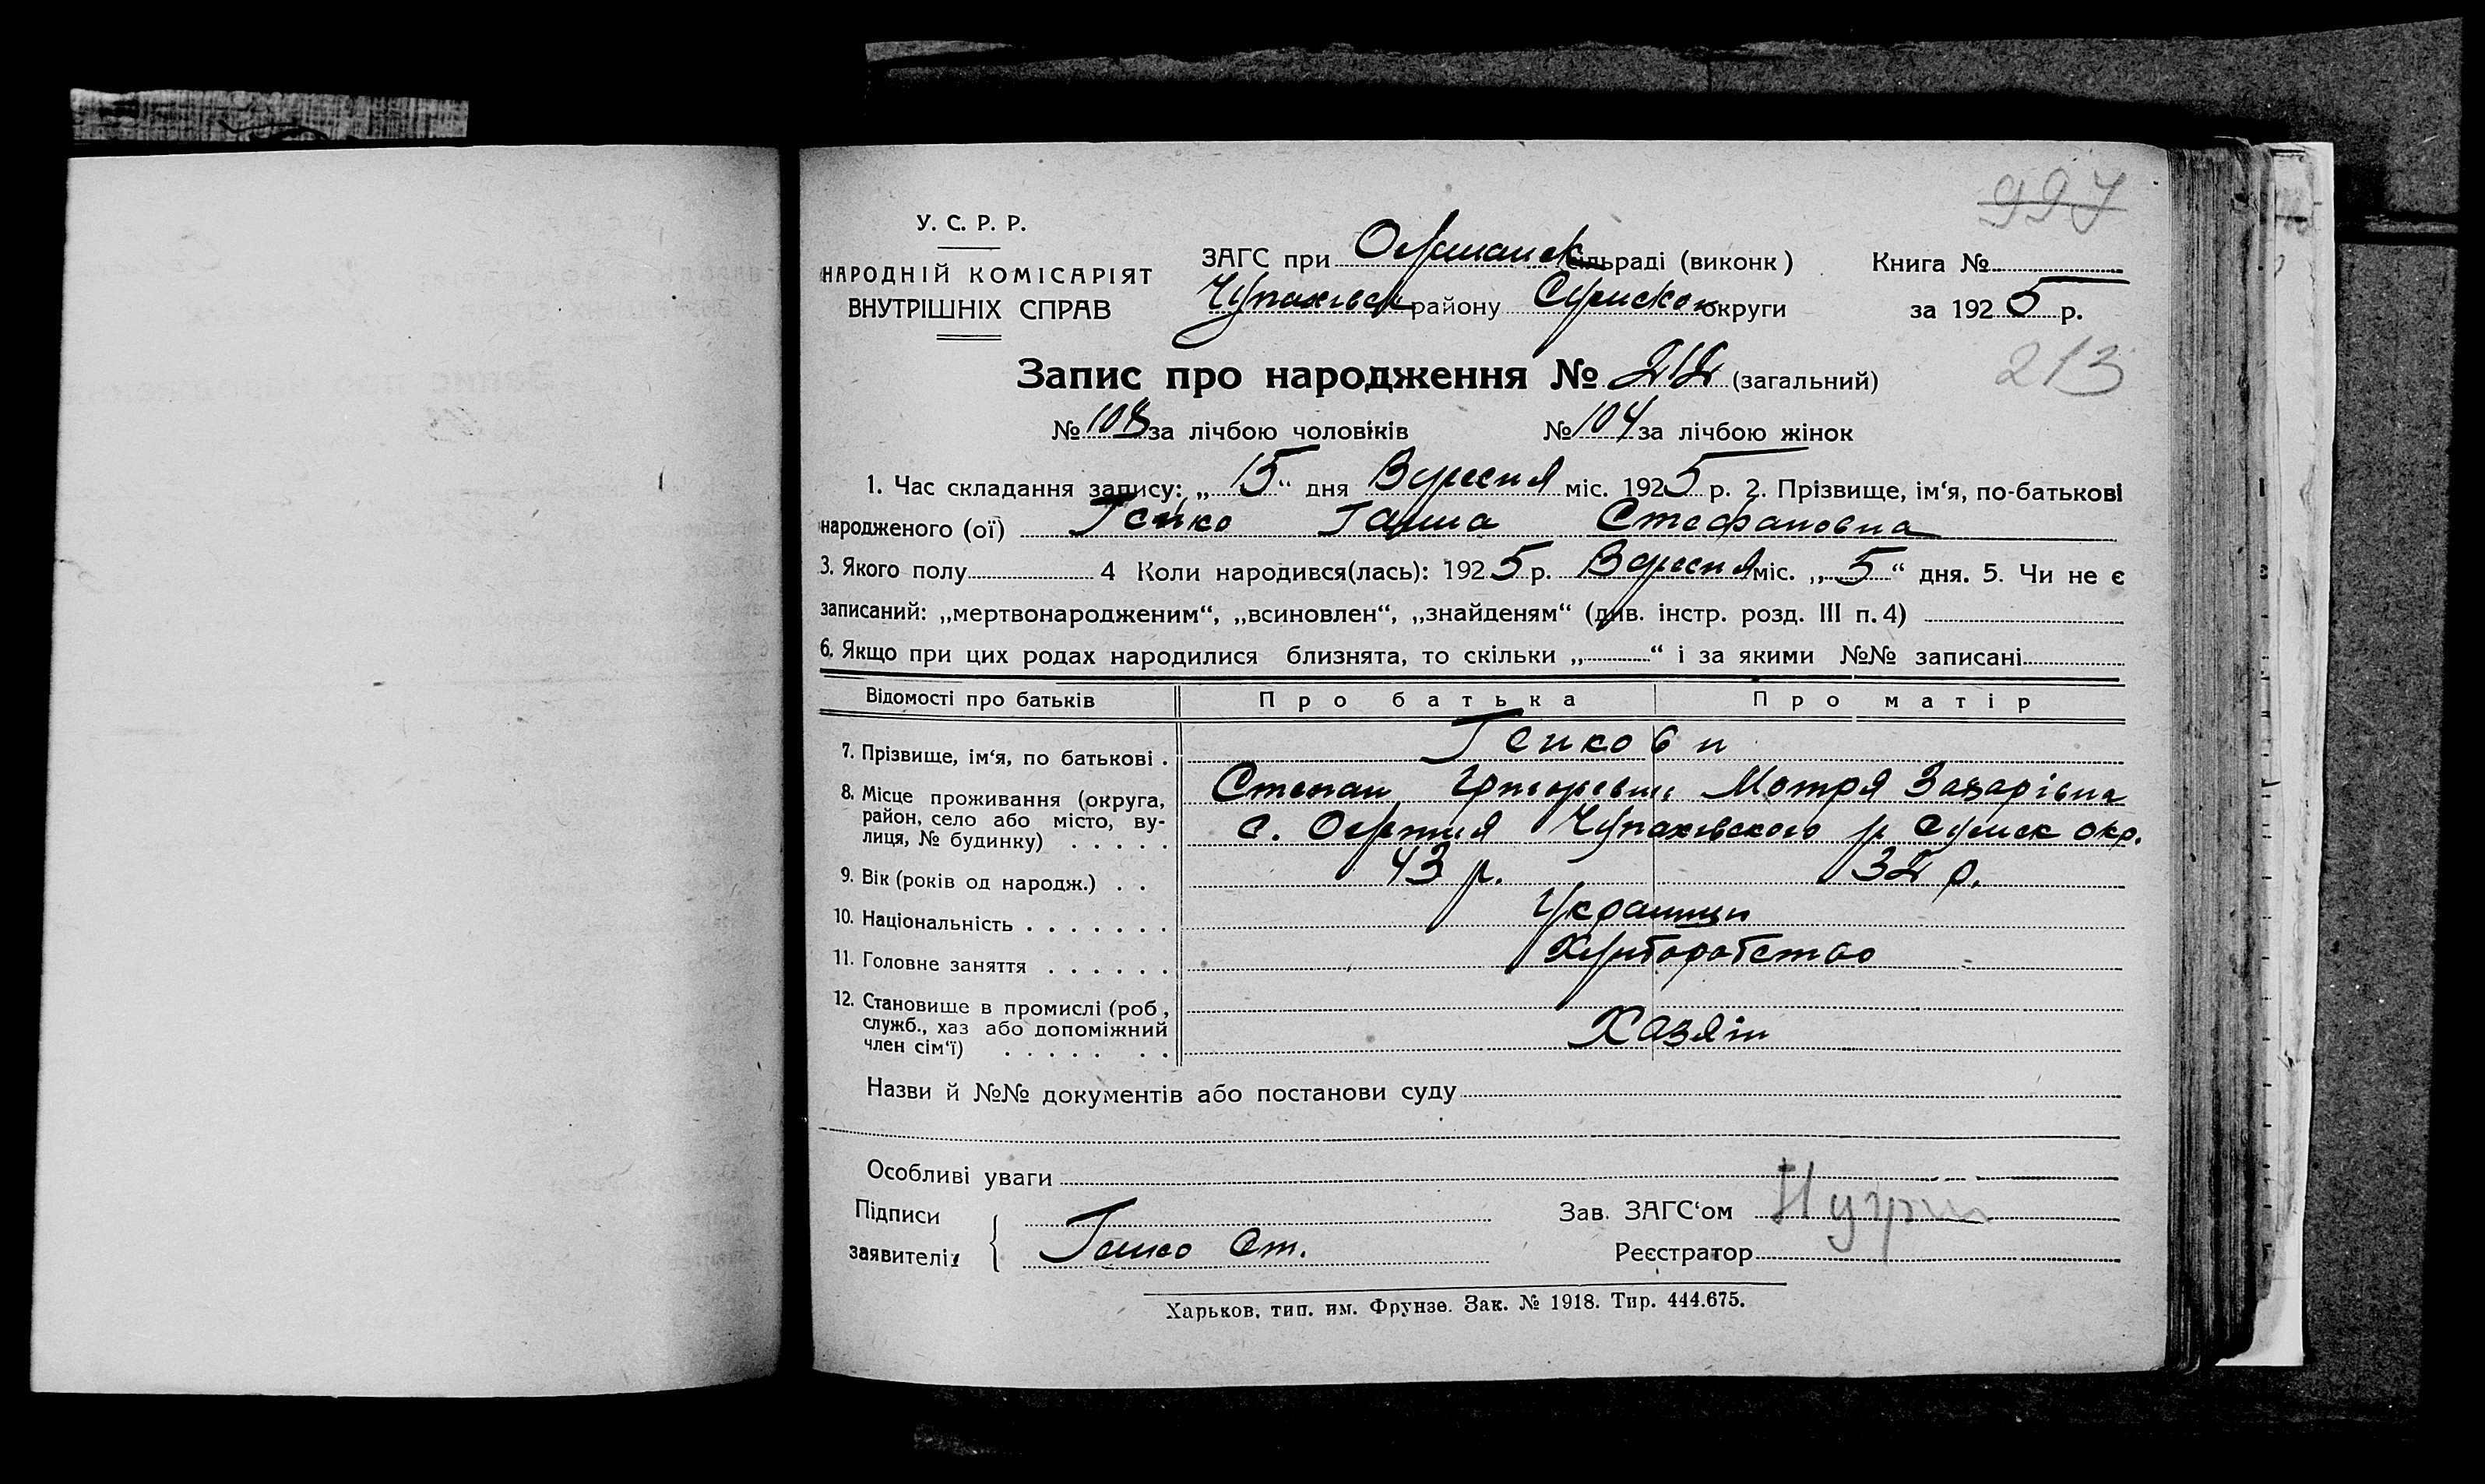 997
У. С. Р. Р.
НАРОДНІЙ КОМІСАРІЯТ
ВНУТРІШНІХ СПРАВ
ЗАГС при сільраді (виконк)
Чупахівськ району Сумськой округи
Книга №
за 1925 р.
Запис про народження № 212 (загальний)
213
№ 108 за лічбою чоловіків № 104 за лічбою жінок
1. Час складання запису: „ 15 “ дня Вересня міс. 1925 р. 2. Прізвище, ім‘я, по-батькові
народженого (ої) Гейко Ганна Стефановна
3. Якого полу 4 Коли народився(лась): 1925 р. Вересня міс. „ 5 “ дня. 5. Чи не є
записаний: „мертвонародженим“, „всиновлен“, „знайденям“ (див. інстр. розд. III п. 4)
6. Якщо при цих родах народилися близнята, то скільки „ “ і за якими №№ записані
Відомості про батьків Про батька Про матір
7. Прізвище, ім‘я, по батькові . Гейкови
Степан Григоревич Мотря Захарівна
8. Місце проживання (округа,
район, село або місто, ву-
лиця, № будинку) . . . . . с. Чупахівського р Сумськ окр.
9. Вік (років од народж.) . . 43 р. 32 р.
10. Національність . . . . . . . Українци
11. Головне заняття . . . . . . Хліборобство
12. Становище в промислі (роб.,
служб., хаз або допоміжний
член сім‘ї) . . . . . . . Хазяїн
Назви й №№ документів або постанови суду
Особливі уваги
Підписи
заявителів { Гейко Ст.
Зав. ЗАГС‘ом
Реєстратор
Харьков, тип. им. Фрунзе. Зак. № 1918. Тир. 444.675.